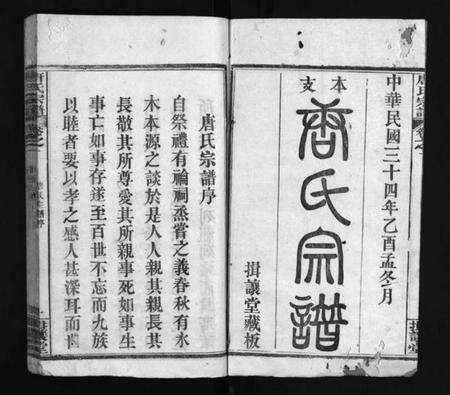 中華民國三十四年乙酉孟冬月
本支
唐氏宗譜
揖讓堂藏板
唐氏宗譜序
自祭禮有禴祠烝嘗之義春秋有水
木本源之談於是人人親其親長其
長敬其所尊愛其所親事死如事生
事亡如事存遂至百世不忘而九族
以睦者要以孝之感人甚深耳而